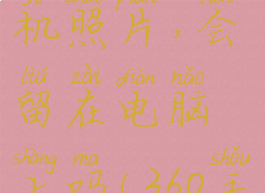 机照片，会
liú zài diàn nǎo
留在电脑
shàng ma shǒu
上吗(360手